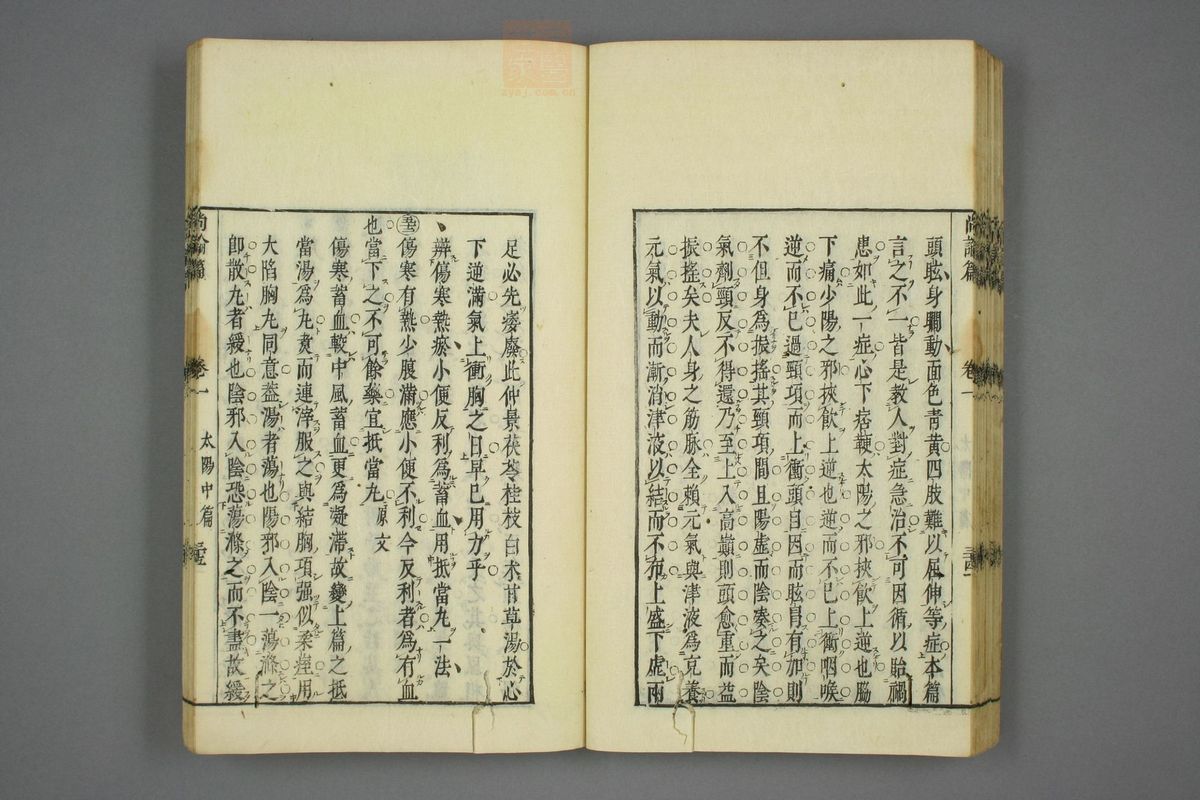 頭眩身瞤動面色青黃四肢難以屈伸等症本篇
言之不一皆是教人對症急治不可因循以貽禍
患如此一症心下痞鞕太陽之邪挾飲上逆也脇
下痛少陽之邪挾飲上逆也逆而不已上衝咽喉
逆而不已過頸項而上衝頭目因而眩冐有加則
不但身為振搖其頸項間且陽虛而陰湊之矣陰
氣剸頸反不得還乃至上入高巔則頭愈重而益
振搖矣夫人身之筋脉全賴元氣與津液為充養
元氣以動而漸消津液以結而不布上盛下虛兩
尚論篇 卷一
足必先痿廢此仲景茯苓桂枝白朮甘草湯於心
下逆滿氣上衝胸之日早已用力乎
辨傷寒熱瘀小便反利為蓄血用抵當丸一法
傷寒有熱少腹滿應小便不利今反利者為有血
也當下之不可餘藥宜抵當丸 原文
傷寒蓄血較中風蓄血更為凝滯故變上篇之抵
當湯為丸煑而連滓服之與結胸項强似柔痙用
大陷胸丸同意葢湯者蕩也陽邪入陰一蕩滌之
卽散丸者緩也陰邪入陰恐蕩滌之而不盡故緩
尚論篇 卷一 太陽中篇
zysj.com.cn